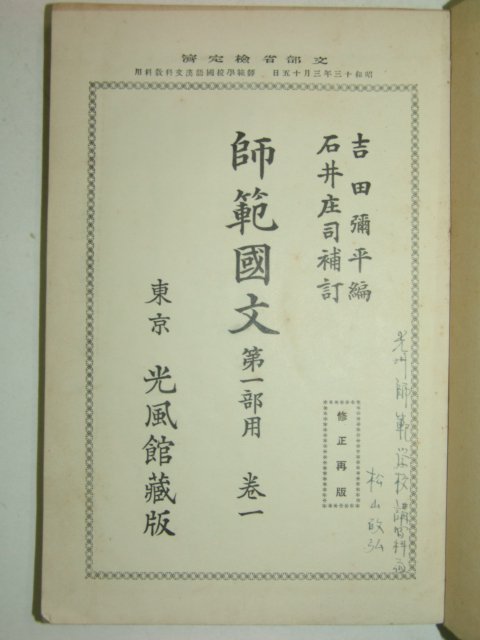 文部省検定済
昭和十三年三月十五日 師範學校國語漢文科敎科用
吉田彌平編
石井庄司補訂
師範國文 第一部用 卷一
東京 光風館藏版
修正再版
光州師範学校講習科
松山